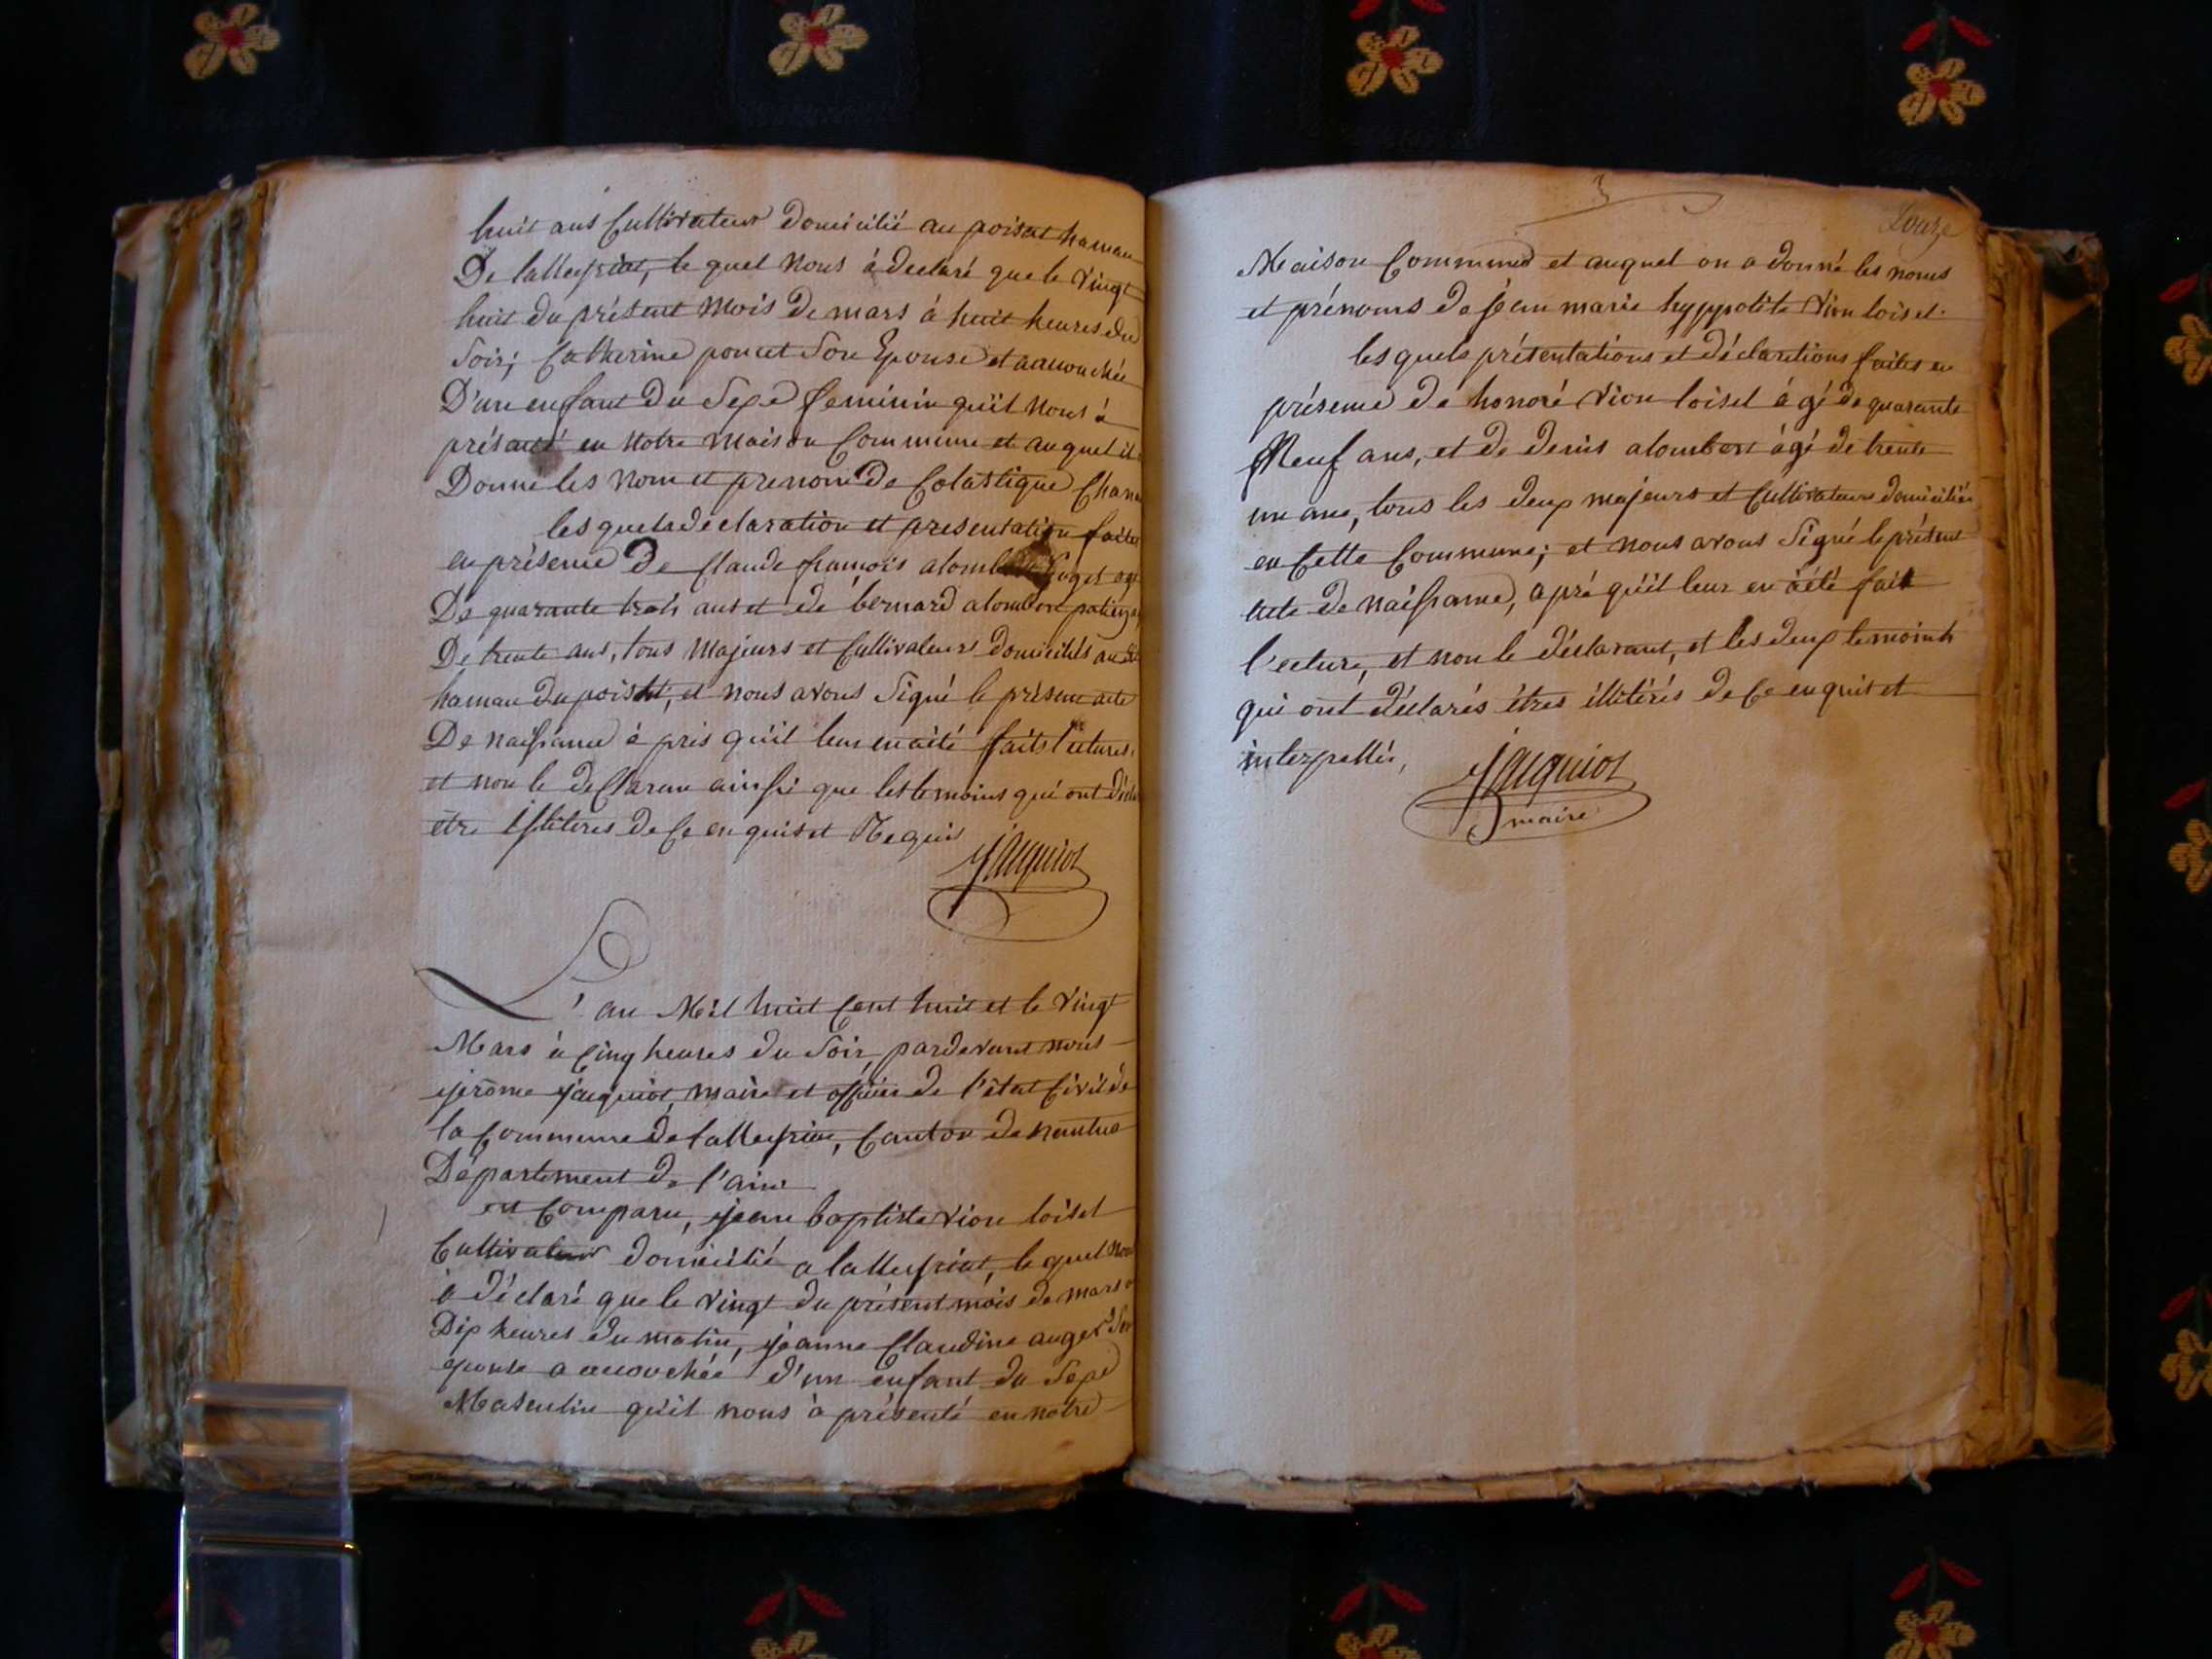 huit ans Cultivateur Domicilié au poisat hamau
De lalleyriat, le quel Nous à declaré que le vingt
huit du présent Mois De mars à huit heures du
Soir; Catherine poncet Son Epouse et accouchée
D'un enfant Du Sexe feminin qu'il nous à
présanté en Notre Maison Commune et auquel il
Donne les Nom et prenom De Colastique
les quels déclaration et presentation faite
en présence De Claude françois
De quarante trois ans et de bernard alombert
De trente ans, tous Majeurs et Cultivateurs Domiciliés au dit
hamau Du poisat, et nous avons Signé le présent acte
De naissance à pris qu'il leur en aété faits lectures
et non le Declarant ainssi que les temoins qui ont
etre illiteres De Ce en quis et Requis
Jaquiot
L'an Mil huit Cent huit et le vingt
Mars à Cinq heures du Soir, pardevant nous
jerome jaquiot, maire et officier de l'état Civil de
la Commune de lalleyriat, Canton de nantua
Département de l'ain
est Comparu, jean baptiste vion loisel
Cultivateur domicilié a lalleyriat, le quel nous
à déclaré que le vingt du présent mois de mars à
Dix heures du matin, jeanne Claudine auger Son
epouse a accouchée d'un enfant du Sexe
Masculin qu'il nous à présenté en notre
3
Maison Commune et auquel on a donné les noms
et prénoms de jean marie hyppolite vion loisel.
les quels présentations et déclarations faites en
présence de honoré vion loisel âgé de quarante
Neuf ans, et de denis alombert âgé de trente
un ans, tous les deux majeurs et Cultivateurs domiciliés
en Cette Commune; et nous avons Signé le présent
acte de naissance, apré qu'il leur en àété fait
l'ecture, et non le déclarant, et les deux temoints
qui ont déclarés étres illitérés de Ce enquis et
interpellés,
Jaquiot
maire